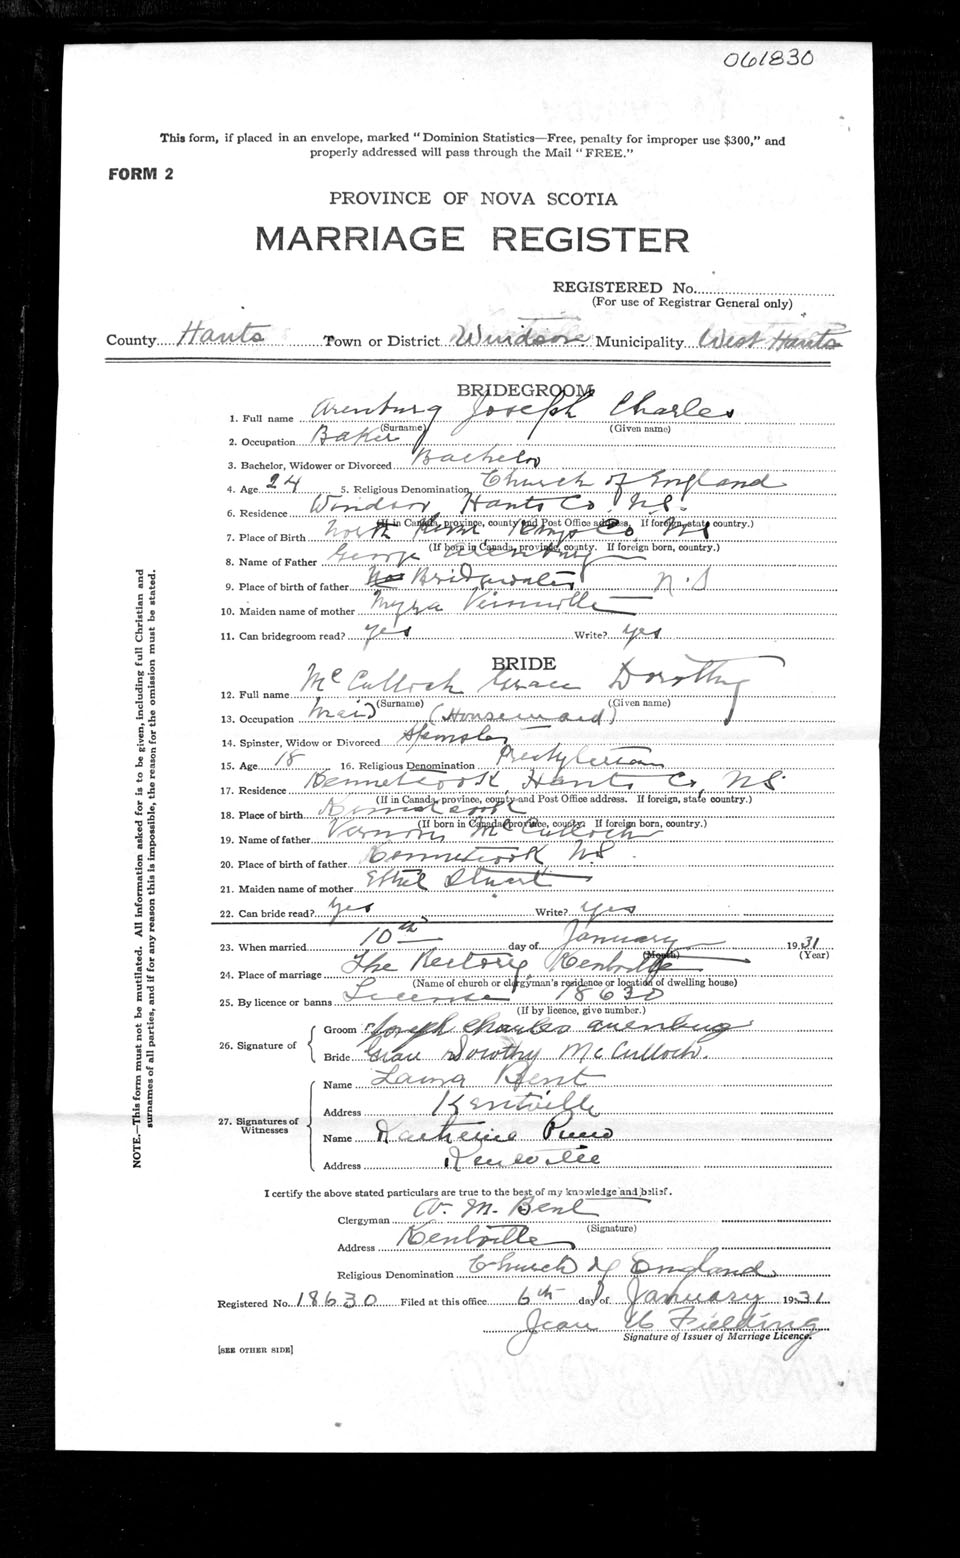 061830
This form, if placed in an envelope, marked "Dominion Statistics—Free, penalty for improper use $300," and
properly addressed will pass through the Mail "FREE."
FORM 2
PROVINCE OF NOVA SCOTIA
MARRIAGE REGISTER
REGISTERED No.
(For use of Registrar General only)
County Hants Town or District Windsor Municipality West Hants
BRIDEGROOM
1. Full name Arenburg Joseph Charles
(Surname) (Given name)
2. Occupation Baker
3. Bachelor, Widower or Divorced Bachelor
4. Age 24 5. Religious Denomination Church of England
6. Residence Windsor Hants Co. N.S.
(If in Canada, province, county and Post Office address. If foreign, state country.)
7. Place of Birth North Kings Co NS
(If born in Canada, province, county. If foreign born, country.)
8. Name of Father George Arenburg
9. Place of birth of father Bridgewater N.S
10. Maiden name of mother Myra
11. Can bridegroom read? yes Write? yes
BRIDE
12. Full name McCulloch Grace Dorothy
(Surname) (Given name)
13. Occupation Maid (Housemaid)
14. Spinster, Widow or Divorced Spinster
15. Age 18 16. Religious Denomination Presbyterian
17. Residence Kennetcook, Hants Co, NS
(If in Canada, province, county and Post Office address. If foreign, state country.)
18. Place of birth Kennetcook
(If born in Canada, province, county. If foreign born, country.)
19. Name of father Vernon McCulloch
20. Place of birth of father Kennetcook N.S.
21. Maiden name of mother Ethel Stuart
22. Can bride read? yes Write? yes
23. When married 10th day of January 1931
(Month) (Year)
24. Place of marriage The Rectory, Kentville
(Name of church or clergyman's residence or location of dwelling house)
25. By licence or banns License 18630
(If by licence, give number.)
26. Signature of
Groom Joseph Charles Arenburg
Bride Grace Dorothy McCulloch.
27. Signatures of Witnesses
Name Laura Bent
Address Kentville
Name Katherine
Address Kentville
I certify the above stated particulars are true to the best of my knowledge and belief.
Clergyman W. M. Bent
(Signature)
Address Kentville
Religious Denomination Church of England
Registered No. 18630 Filed at this office 6th day of January 1931
Jean Fielding
Signature of Issuer of Marriage Licence.
[SEE OTHER SIDE]
NOTE.—This form must not be mutilated. All information asked for is to be given, including full Christian and
surnames of all parties, and if for any reason this is impossible, the reason for the omission must be stated.